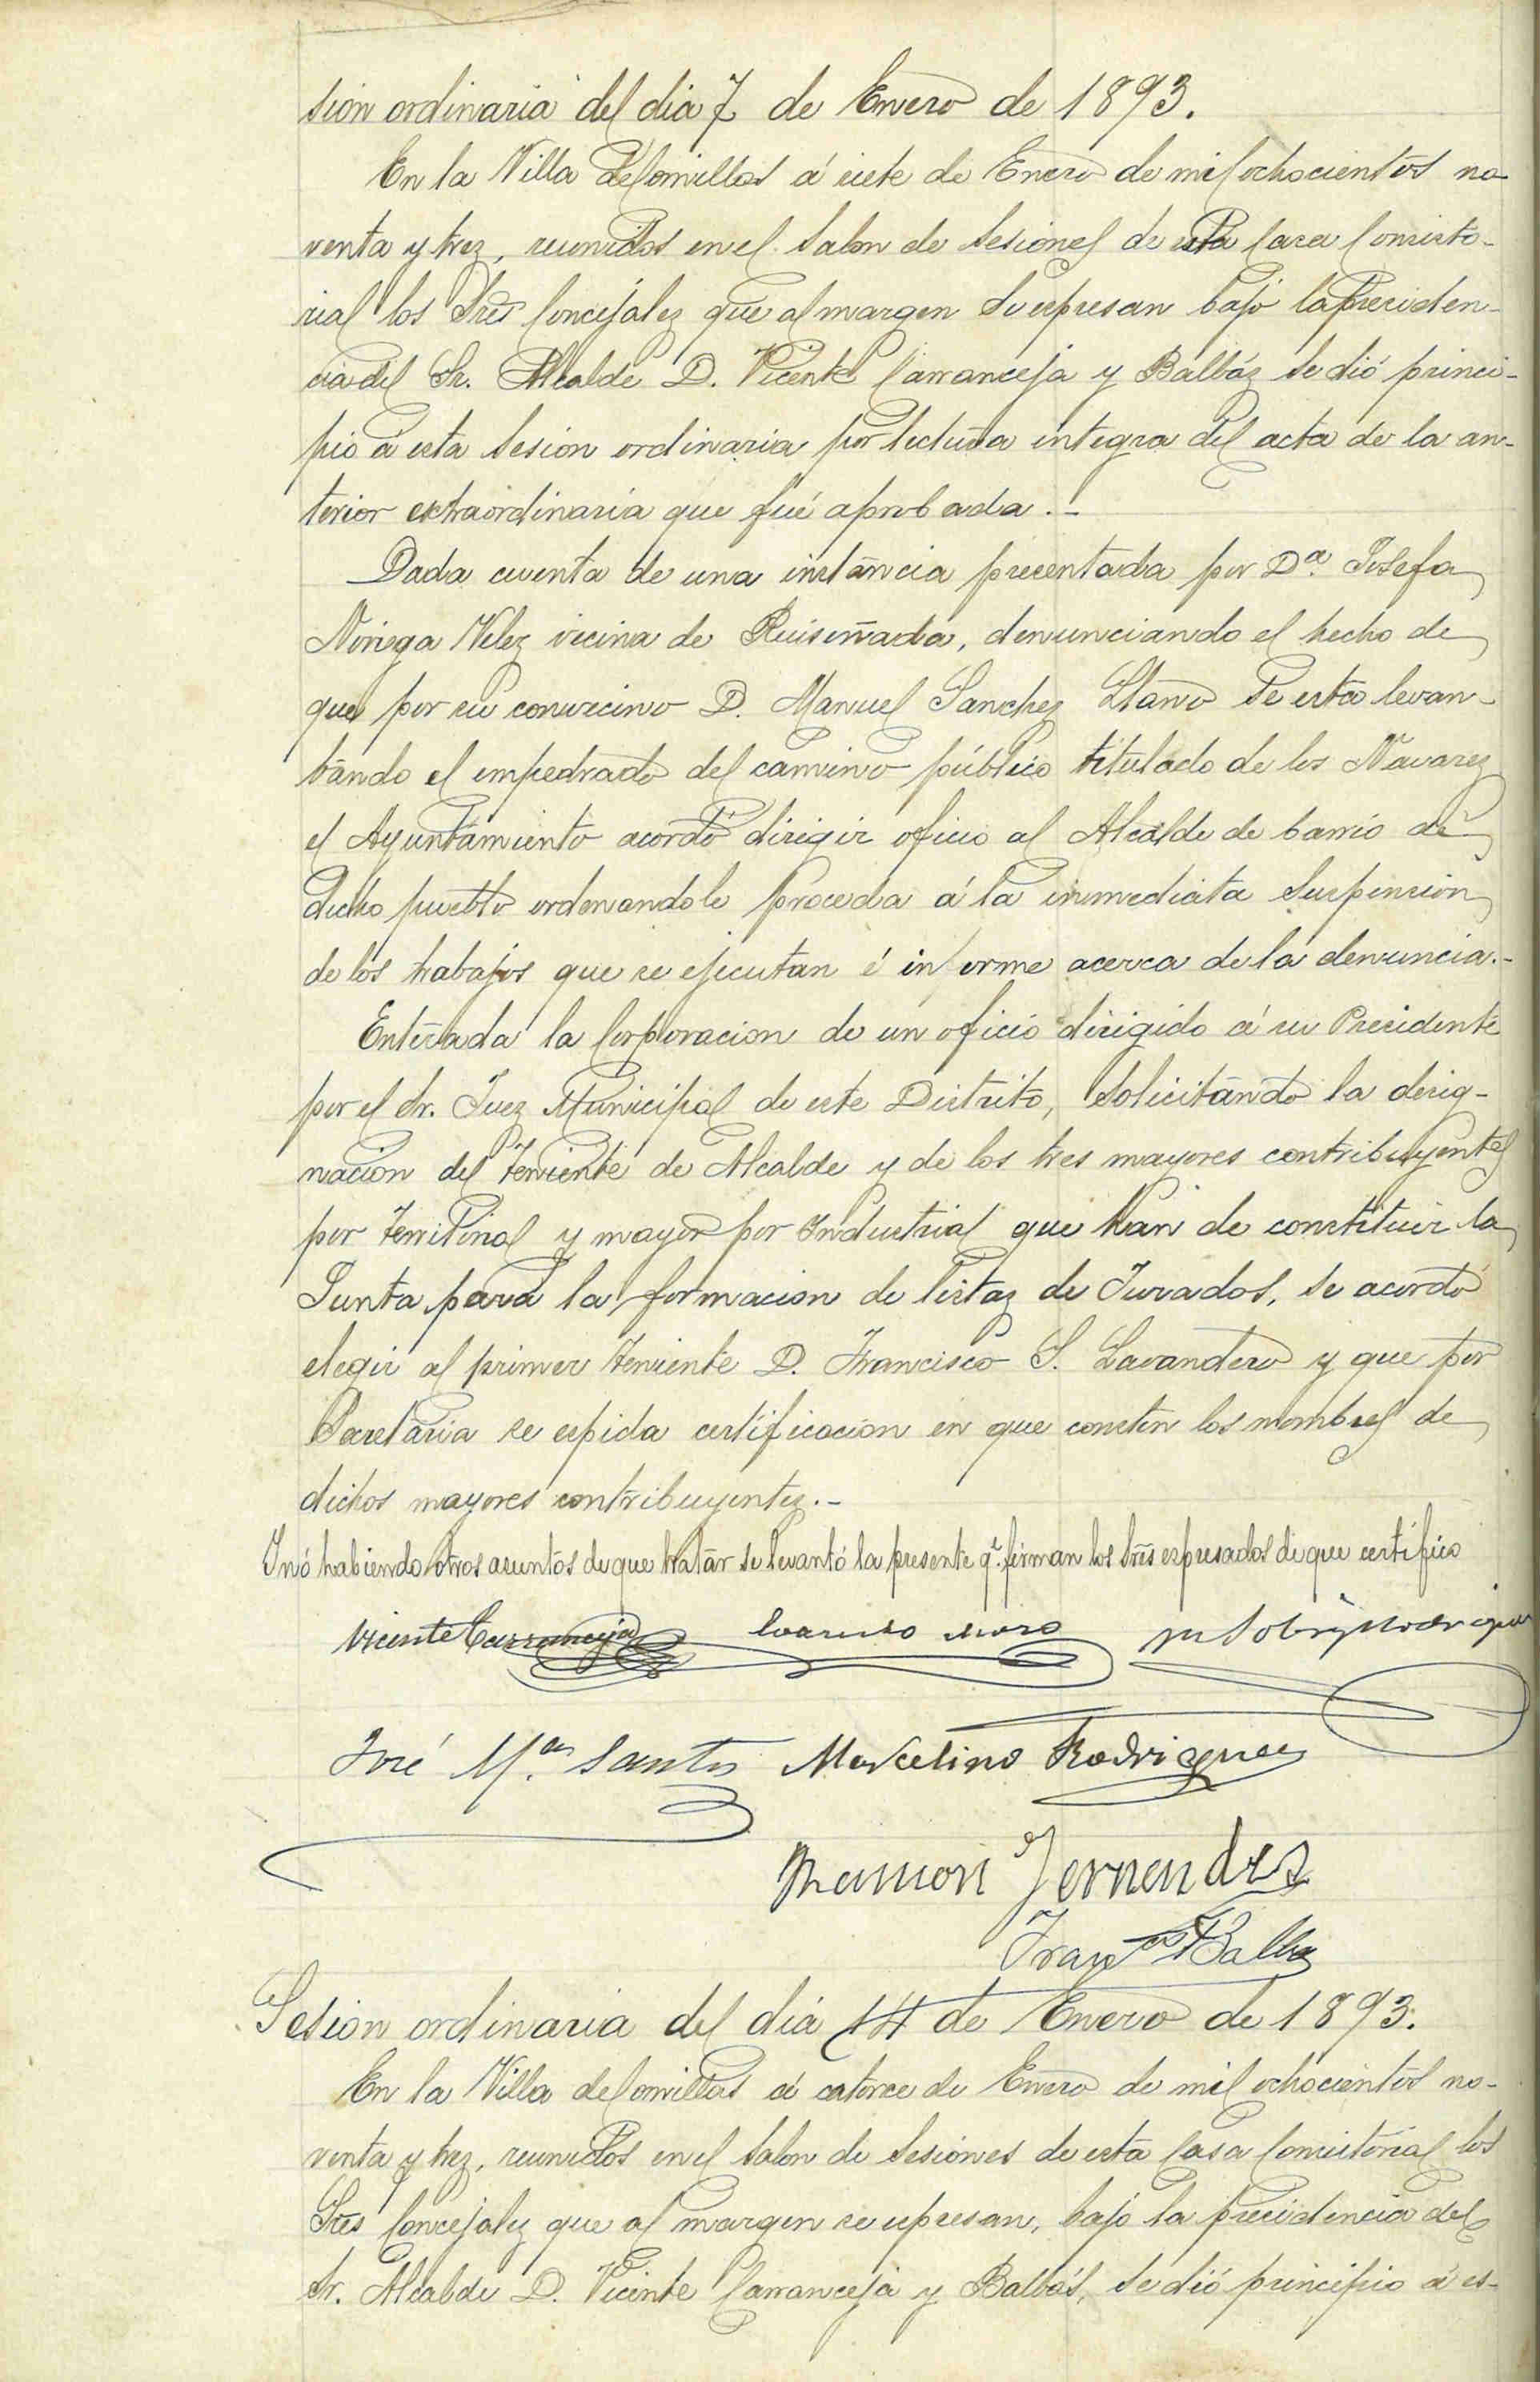 sion ordinaria del dia 7 de Enero de 1893.
En la Villa de Comillas á siete de Enero de mil ochocientos no-
venta y trez, reunidos en el Salon de Sesiones de esta Casa Consisto-
rial los Sres Concejalez que al margen se expresan bajo la Presiden-
cia del Sr. Alcalde D. Vicente Carranceja y Balbáz se dió princi-
pio á esta Sesion ordinaria por lectura integra del acta de la an-
terior extraordinaria que fué aprobada.-
Dada cuenta de una instáncia presentada por Dª. Josefa
Noriega Velez vecina de Ruiseñada, denunciando el hecho de
que por su convecino D. Manuel Sanchez Llano se está levan-
tando el empedrado del camino público titulado de los Navarez
el Ayuntamiento acordó dirigir oficio al Alcalde de barrio de
dicho pueblo ordenandole proceda á la inmediata Suspension
de los trabajos que se ejecutan é informe acerca de la denuncia.-
Enterada la Corporacion de un oficio dirigido á su Presidente
por el Sr. Juez Municipal de este Distrito, Solicitando la desig-
nacion del Teniente de Alcalde y de los tres mayores contribuyentes
por Territorial y mayor por Industrial que han de constituir la
Junta para la formacion de listaz de Jurados, se acordó
elegir al primer Teniente D. Francisco S. Lavandero y que por
Secretaria se espida certificacion en que consten los nombres de
dichos mayores contribuyentez.-
Y nó habiendo otros asuntos de que tratar se levantó la presente q.e firman los Sres espresados de que certifico
Vicente Carranceja Evaristo Moro M Sobrino Rodriguez
José M.ª Santos Marcelino Rodriguez
Ramon Fernandez
Fran.co Balbas
Sesion ordinaria del dia 14 de Enero de 1893.
En la Villa de Comillas á catorce de Enero de mil ochocientos no-
venta y trez, reunidos en el Salon de Sesiones de esta Casa Consistorial los
Sres Concejalez que al margen se expresan, bajo la presidencia del
Sr. Alcalde D. Vicente Carranceja y Balbás, se dió principio á es-